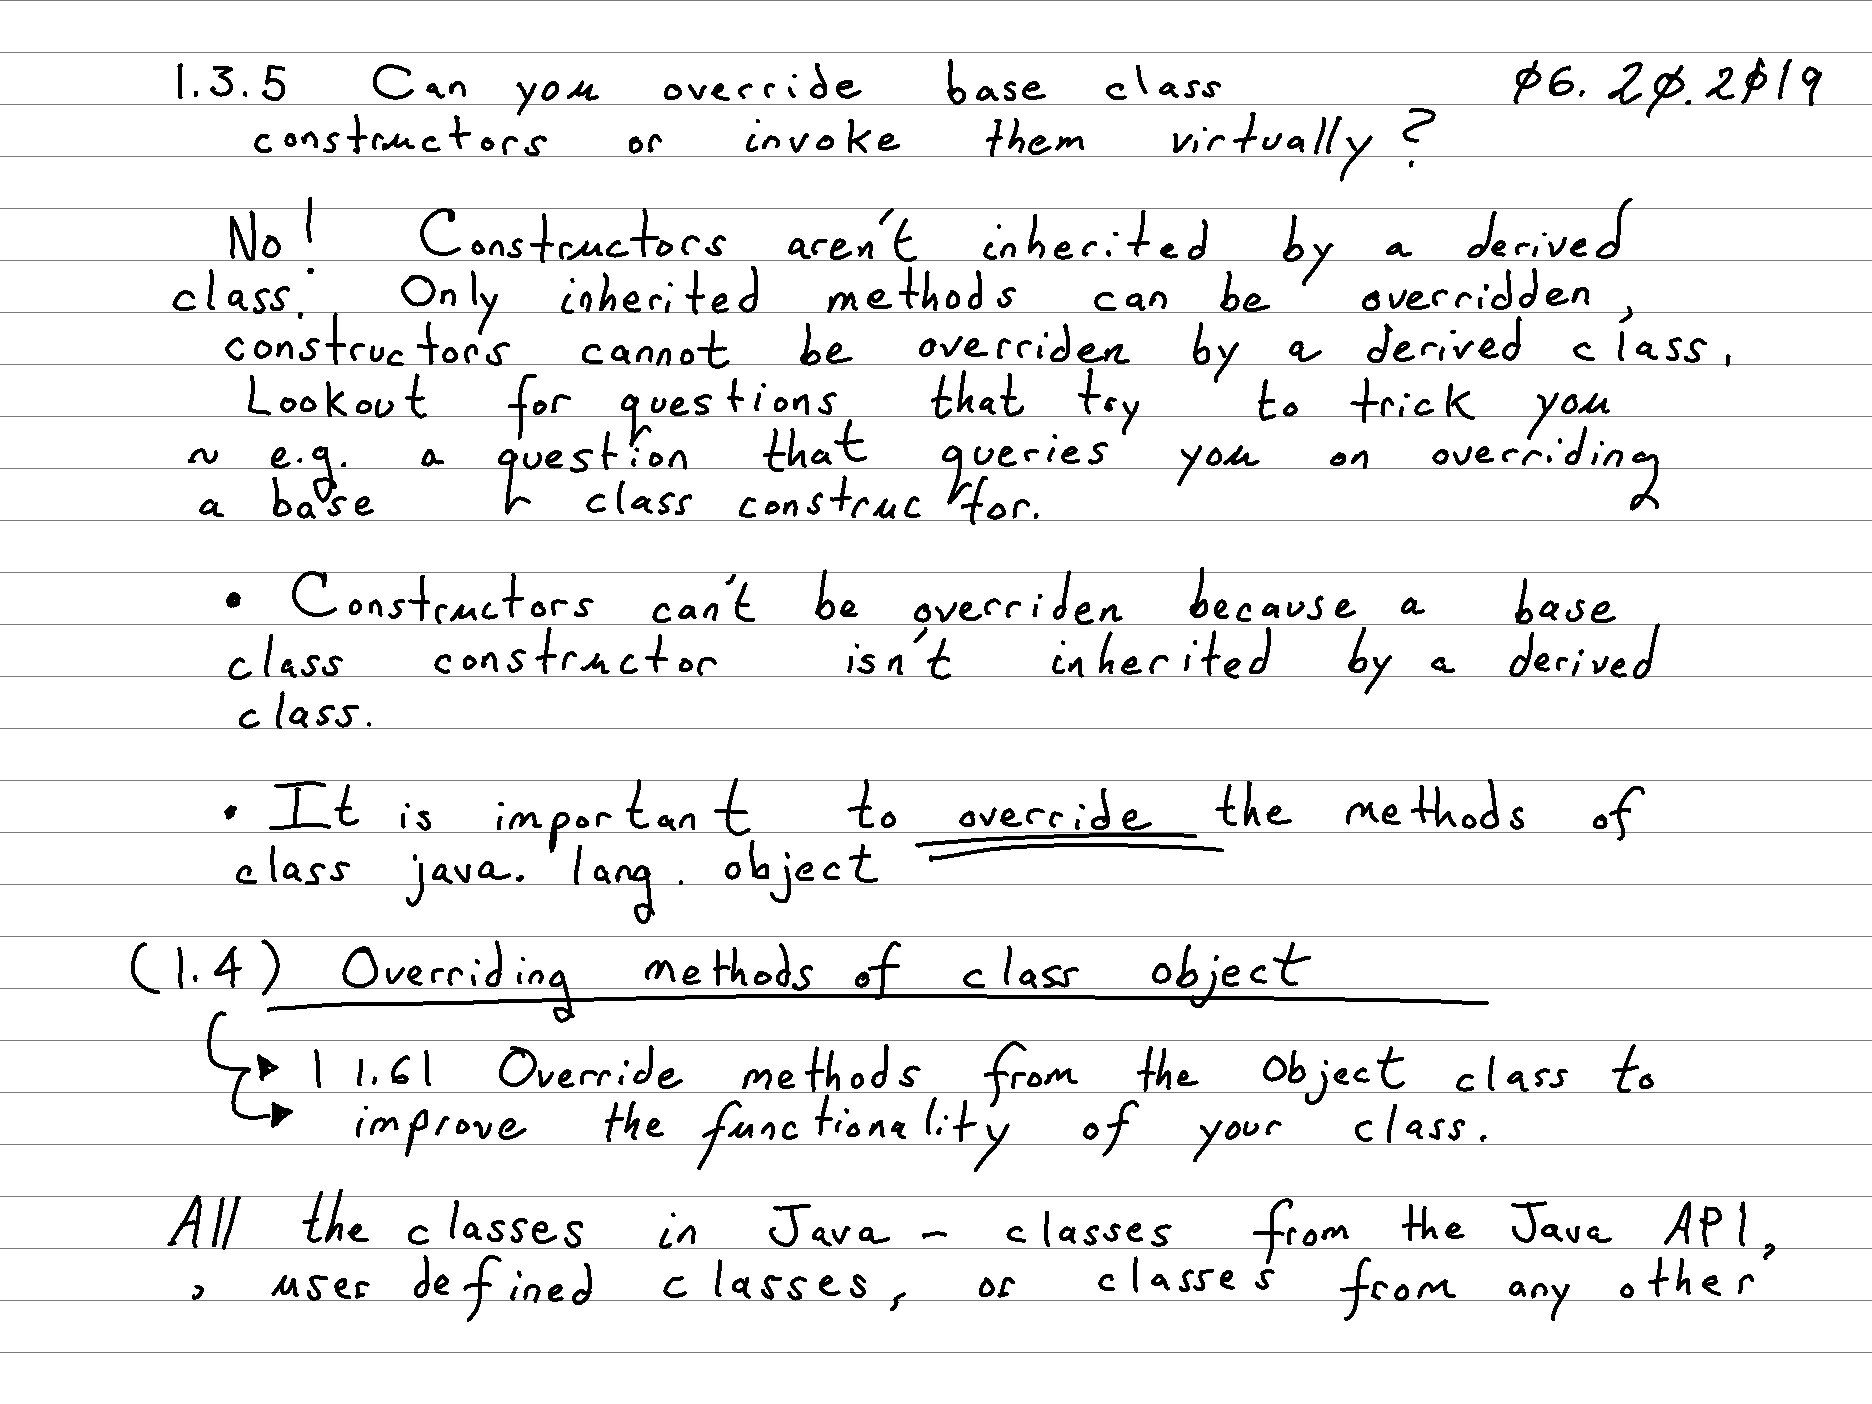 1.3.5 Can you override base class 06.20.2019
constructors or invoke them virtually?
No! Constructors aren't inherited by a derived
class. Only inherited methods can be overridden,
constructors cannot be overriden by a derived class.
Lookout for questions that try to trick you
~ e.g. a question that queries you on overriding
a base class constructor.
• Constructors can't be overriden because a base
class constructor isn't inherited by a derived
class.
• It is important to override the methods of
class java.lang.object
(1.4) Overriding methods of class object
| 1.6 | Override methods from the Object class to
improve the functionality of your class.
All the classes in Java - classes from the Java API,
, user defined classes, or classes from any other